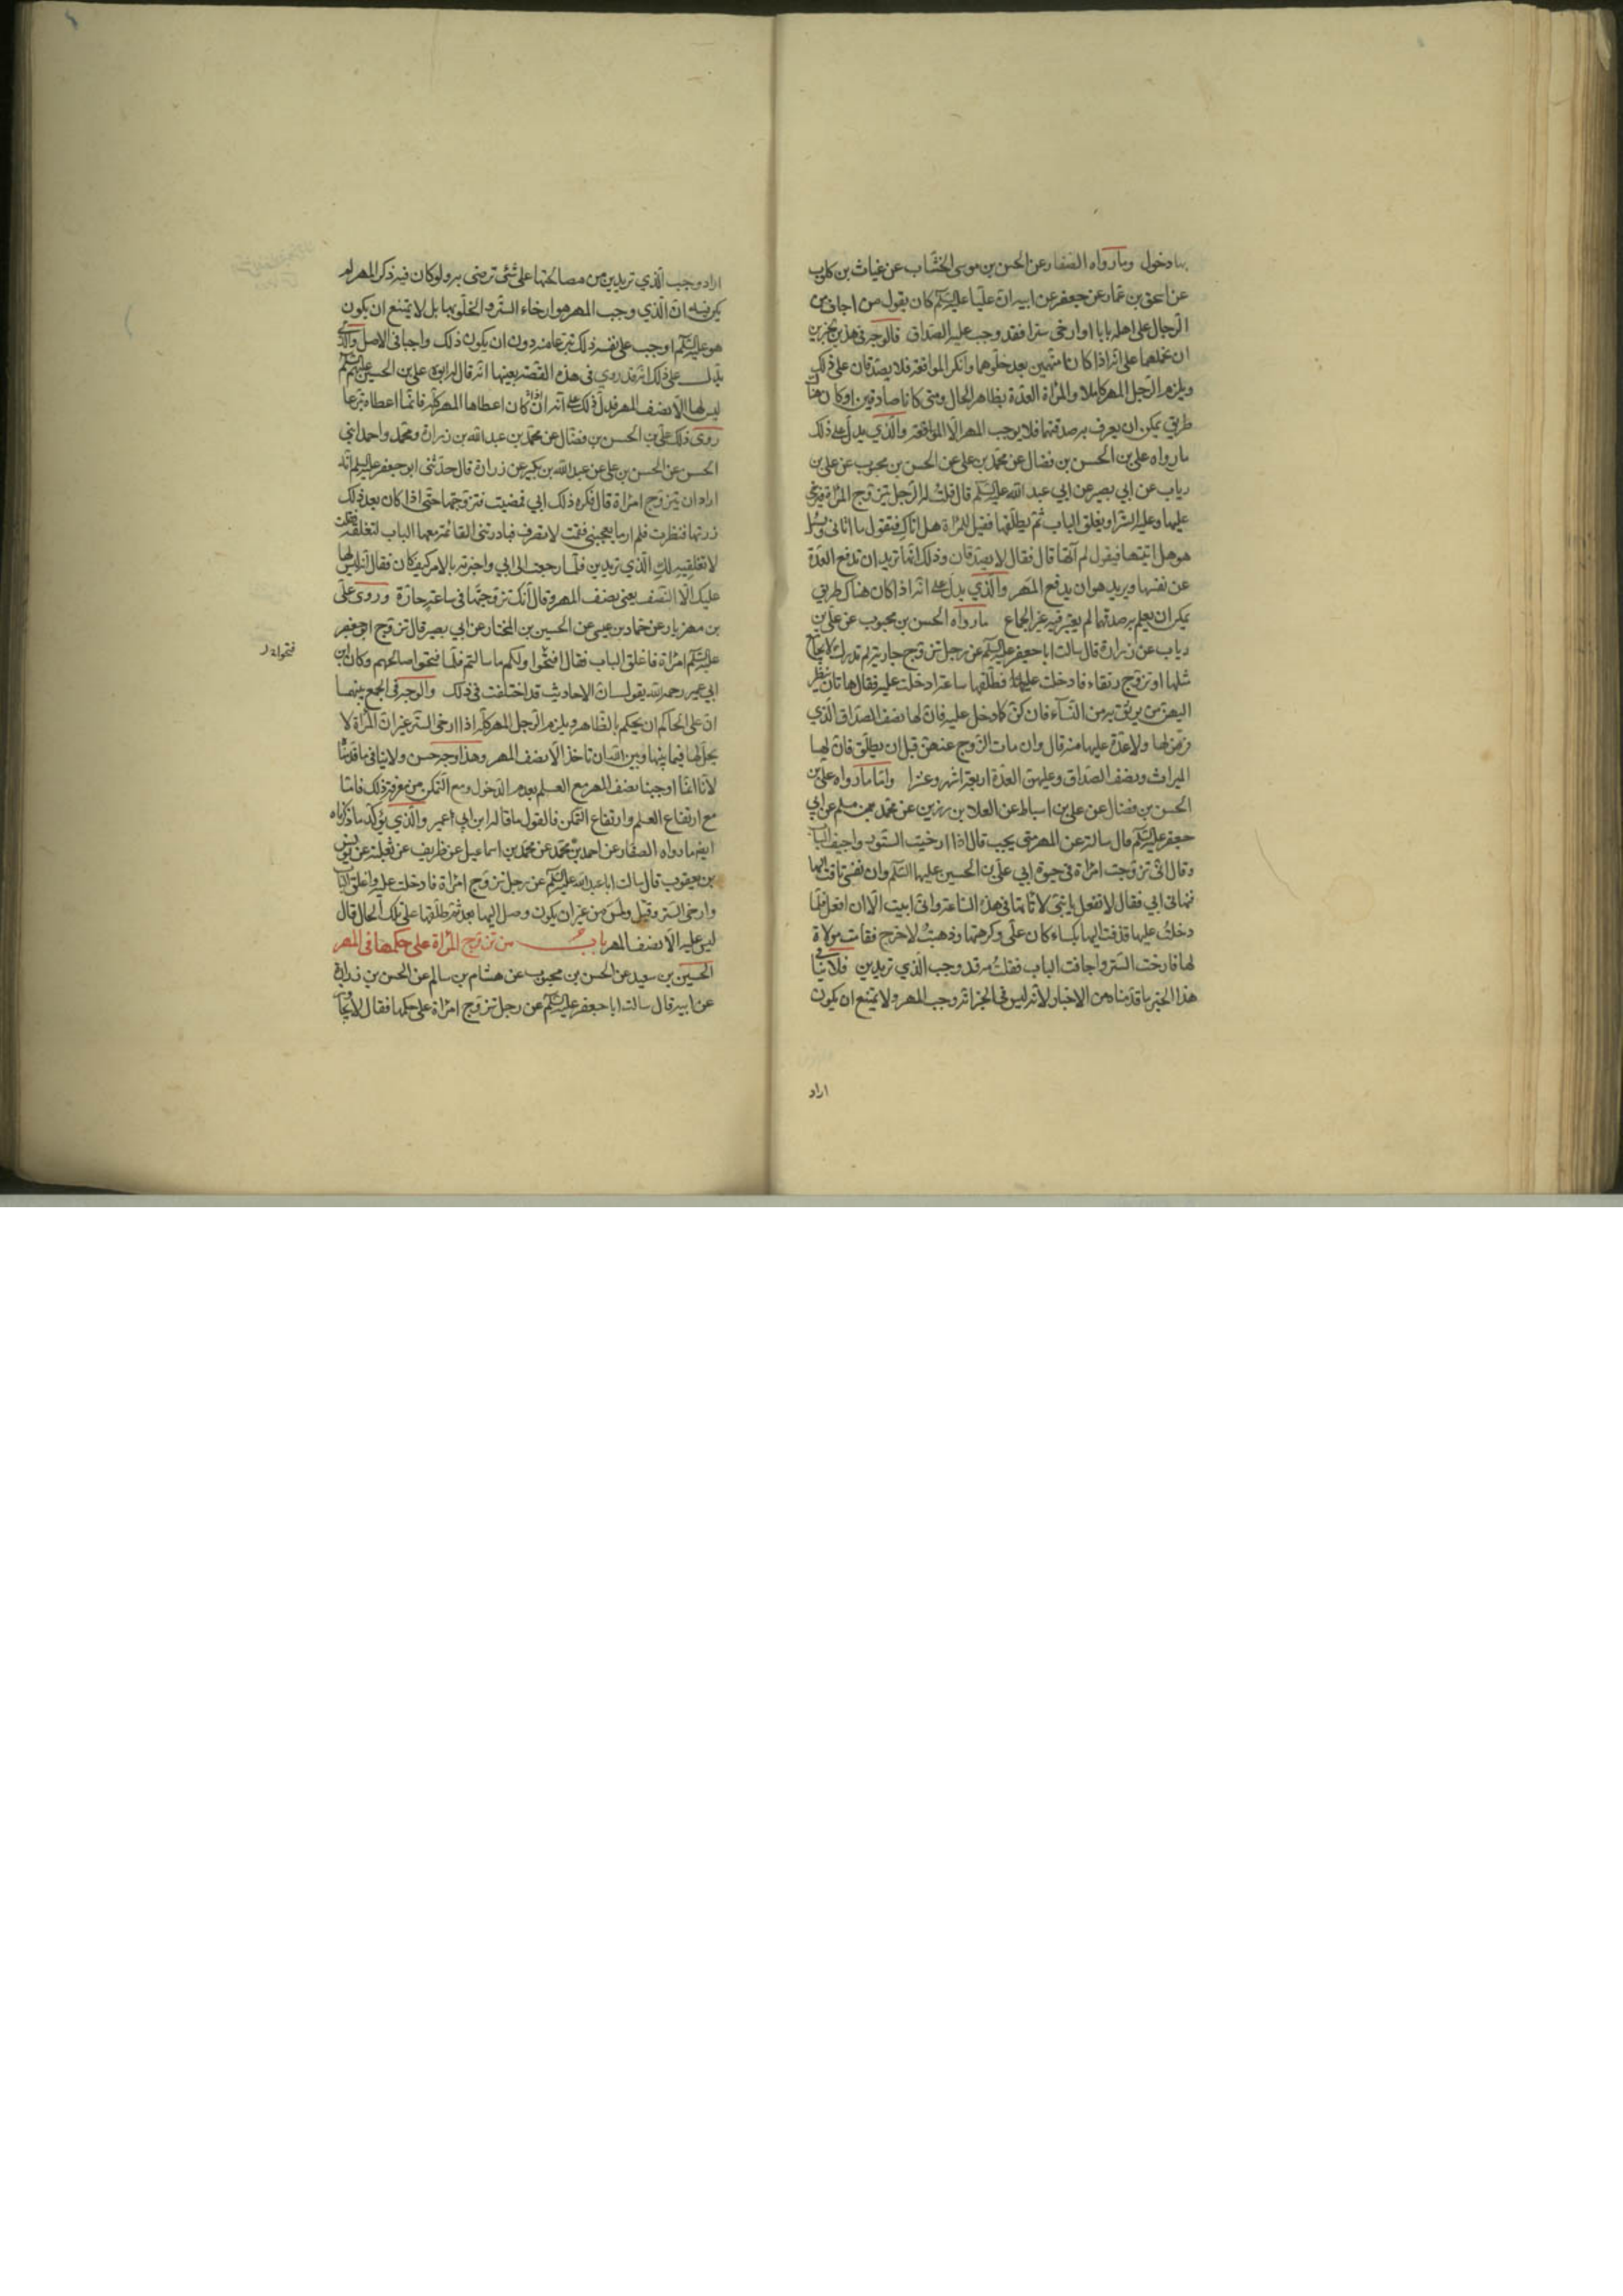 بها دخول وما رواه الصفار عن الحسن بن موسى الخشاب عن غياث بن كلوب
عن اسحق بن عمار عن جعفر عن ابيه ان عليا عليه السلم كان يقول من اجاف من
الرجال على اهله بابا او ارخى سترا فقد وجب عليه الصداق فالوجه فى هذين الخبرين
ان نحملهما على انه اذا كانا متهمين بعد خلوهما وانكر المواقعة فلا يصدقان على ذلك
ويلزم الرجل المهر كاملا والمرأة العدة بظاهر الحال ومتى كانا صادقين او كان هناك
طريق يمكن ان يعرف به صدقهما فلا يوجب المهر الا المواقعة والذي يدل على ذلك
ما رواه على بن الحسن بن فضال عن محمد بن على عن الحسن بن محبوب عن على بن
رياب عن ابي بصير عن ابي عبد الله عليه السلم قال قلت له الرجل يتزوج المرأة فيرخى
عليها وعليه الستر او يغلق الباب ثم يطلقها فقيل للمرأة هل اتاك فتقول ما اتانى ويسئل
هو هل اتيتها فيقول لم آتها قال فقال لا يصدقان وذلك انها تريد ان تدفع العدة
عن نفسها ويريد هو ان يدفع المهر والذي يدل على انه اذا كان هناك طريق
يمكن ان يعلم به صدقهما لم يعتبر فيه غير الجماع ما رواه الحسن بن محبوب عن على بن
رياب عن زرارة قال سالت ابا جعفر عليه السلم عن رجل تزوج جارية لم تدرك لا يجامع
مثلها او تزوج رتقاء فادخلت عليه فطلقها ساعة ادخلت عليه فقال هاتان ينظر
اليهن من يوثق به من النسآء فان كن كما دخل عليه فان لها نصف الصداق الذي
فرض لها ولا عدة عليها منه قال وان مات الزوج عنهن قبل ان يطلق فان لها
الميراث ونصف الصداق وعليهن العدة اربعة اشهر وعشرا واما ما رواه على بن
الحسن بن فضال عن على بن اسباط عن العلا بن رزين عن محمد بن مسلم عن ابي
جعفر عليه السلم قال سالته عن المهر متى يجب قال اذا ارخيت الستور واجيف الباب
وقال انى تزوجت امرأة فى حيوة ابي على بن الحسين عليهما السلم وان نفسى تاقت اليها
فنهانى ابي فقال لا تفعل يا بنى لا تاتها فى هذه الساعة وانى ابيت الا ان افعل فلما
دخلت عليها قذفت اليها بكساء كان على وكرهتها وذهبت لاخرج فقامت مولاة
لها فارخت الستر واجافت الباب فقلت مه قد وجب الذي تريدين فلا ينافى
هذا الخبر ما قدمناه من الاخبار لانه ليس فى الخبر انه وجب المهر ولا يمتنع ان يكون
اراد
اراد وجب الذي تريدين من مصالحتها على شئ ترضى به ولو كان فيه ذكر المهر لم
يكن فيه ان الذي وجب المهر هو ارخاء الستر و الخلو بها بل لا يمتنع ان يكون
هو عليه السلم اوجب على نفسه ذلك تبرعا منه دون ان يكون ذلك واجبا فى الاصل والذى
يدل على ذلك انه قد روي فى هذه القصة بعينها انه قال له ابوه على بن الحسين عليهم السلم
ليس لها الا نصف المهر فدل ذلك على انه ان كان اعطاها المهر كله فانما اعطاه تبرعا
روى ذلك على بن الحسن بن فضال عن محمد بن عبد الله بن زرارة ومحمد واحمد ابنى
الحسن عن الحسن بن على عن عبد الله بن بكير عن زرارة قال حدثنى ابو جعفر عليه السلم انه
اراد ان يتزوج امرأة قال فكره ذلك ابي فمضيت فتزوجتها حتى اذا كان بعد ذلك
زرتها فنظرت فلم ار ما يعجبنى فقمت لانصرف فبادرتنى القائمة معها الباب لتغلقه فقلت
لا تغلقيه لك الذي تريدين فلما رجعت الى ابي واخبرته بالامر كيف كان فقال انه ليس لها
عليك الا النصف يعنى نصف المهر وقال انك تزوجتها فى ساعة حارة وروى على
بن مهزيار عن حماد بن عيسى عن الحسين بن المختار عن ابي بصير قال تزوج ابو جعفر
عليه السلم امرأة فاغلق الباب فقال افتحوا ولكم ما سالتم فلما فتحوا صالحهم وكان ابن
ابي عمير رحمه الله يقول ان الاحاديث قد اختلفت فى ذلك والوجه فى الجمع بينهما
ان على الحاكم ان يحكم بالظاهر ويلزم الرجل المهر كله اذا ارخى الستر غير ان المرأة لا
يحل لها فيما بينها وبين الله ان تاخذ الا نصف المهر وهذا وجه حسن ولا ينافى ما قدمنا
لانا انما اوجبنا نصف المهر مع العلم بعدم الدخول ومع التمكن من معرفة ذلك فاما
مع ارتفاع العلم وارتفاع التمكن فالقول ما قاله ابن ابي عمير والذي يؤكد ما ذكرناه
ايضا ما رواه الصفار عن احمد بن محمد عن محمد بن اسماعيل عن ظريف عن ثعلبة عن يونس
بن يعقوب قال سالت ابا عبد الله عليه السلم عن رجل تزوج امرأة فادخلت عليه واغلق الباب
وارخى الستر وقبل ولمس من غير ان يكون وصل اليها بعد ثم طلقها على تلك الحال قال
ليس عليه الا نصف المهر باب من تزوج المرأة على حكمها فى المهر
الحسين بن سعيد عن الحسن بن محبوب عن هشام بن سالم عن الحسن بن زرارة
عن ابيه قال سالت ابا جعفر عليه السلم عن رجل تزوج امرأة على حكمها فقال لا يجاوز